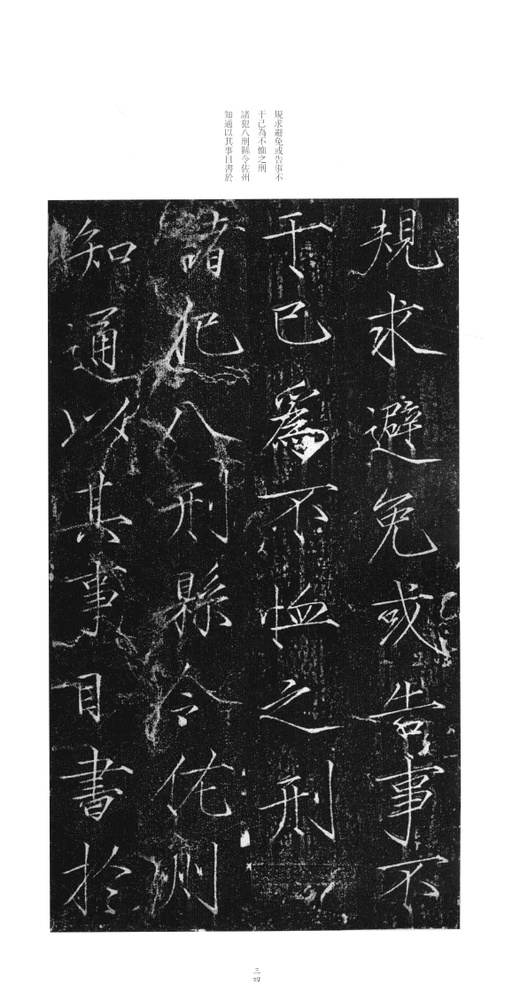 規求避免或告事不
干己為不恤之刑
諸犯八刑縣令佐州
知通以其事目書於
規求避免或告事不
干已為不恤之刑
諸犯八刑縣令佐州
知通以其事目書於
三四